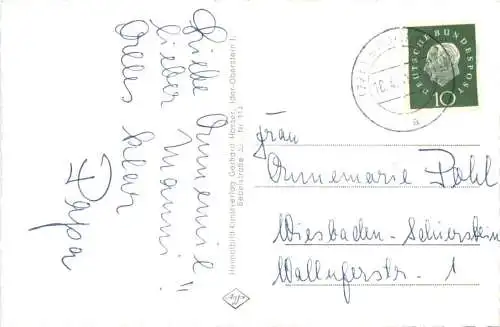 Liebe Annemie
lieber Manni!
Alles Liebe
Papa
Heimatbild-Kunstverlag Gerhard Hanser, Idar-Oberstein 1,
Bebelstraße
Agfa
DEUTSCHE BUNDESPOST
10
a
Frau
Annemarie Pohl
Wiesbaden-Schierstein
Walluferstr. 1